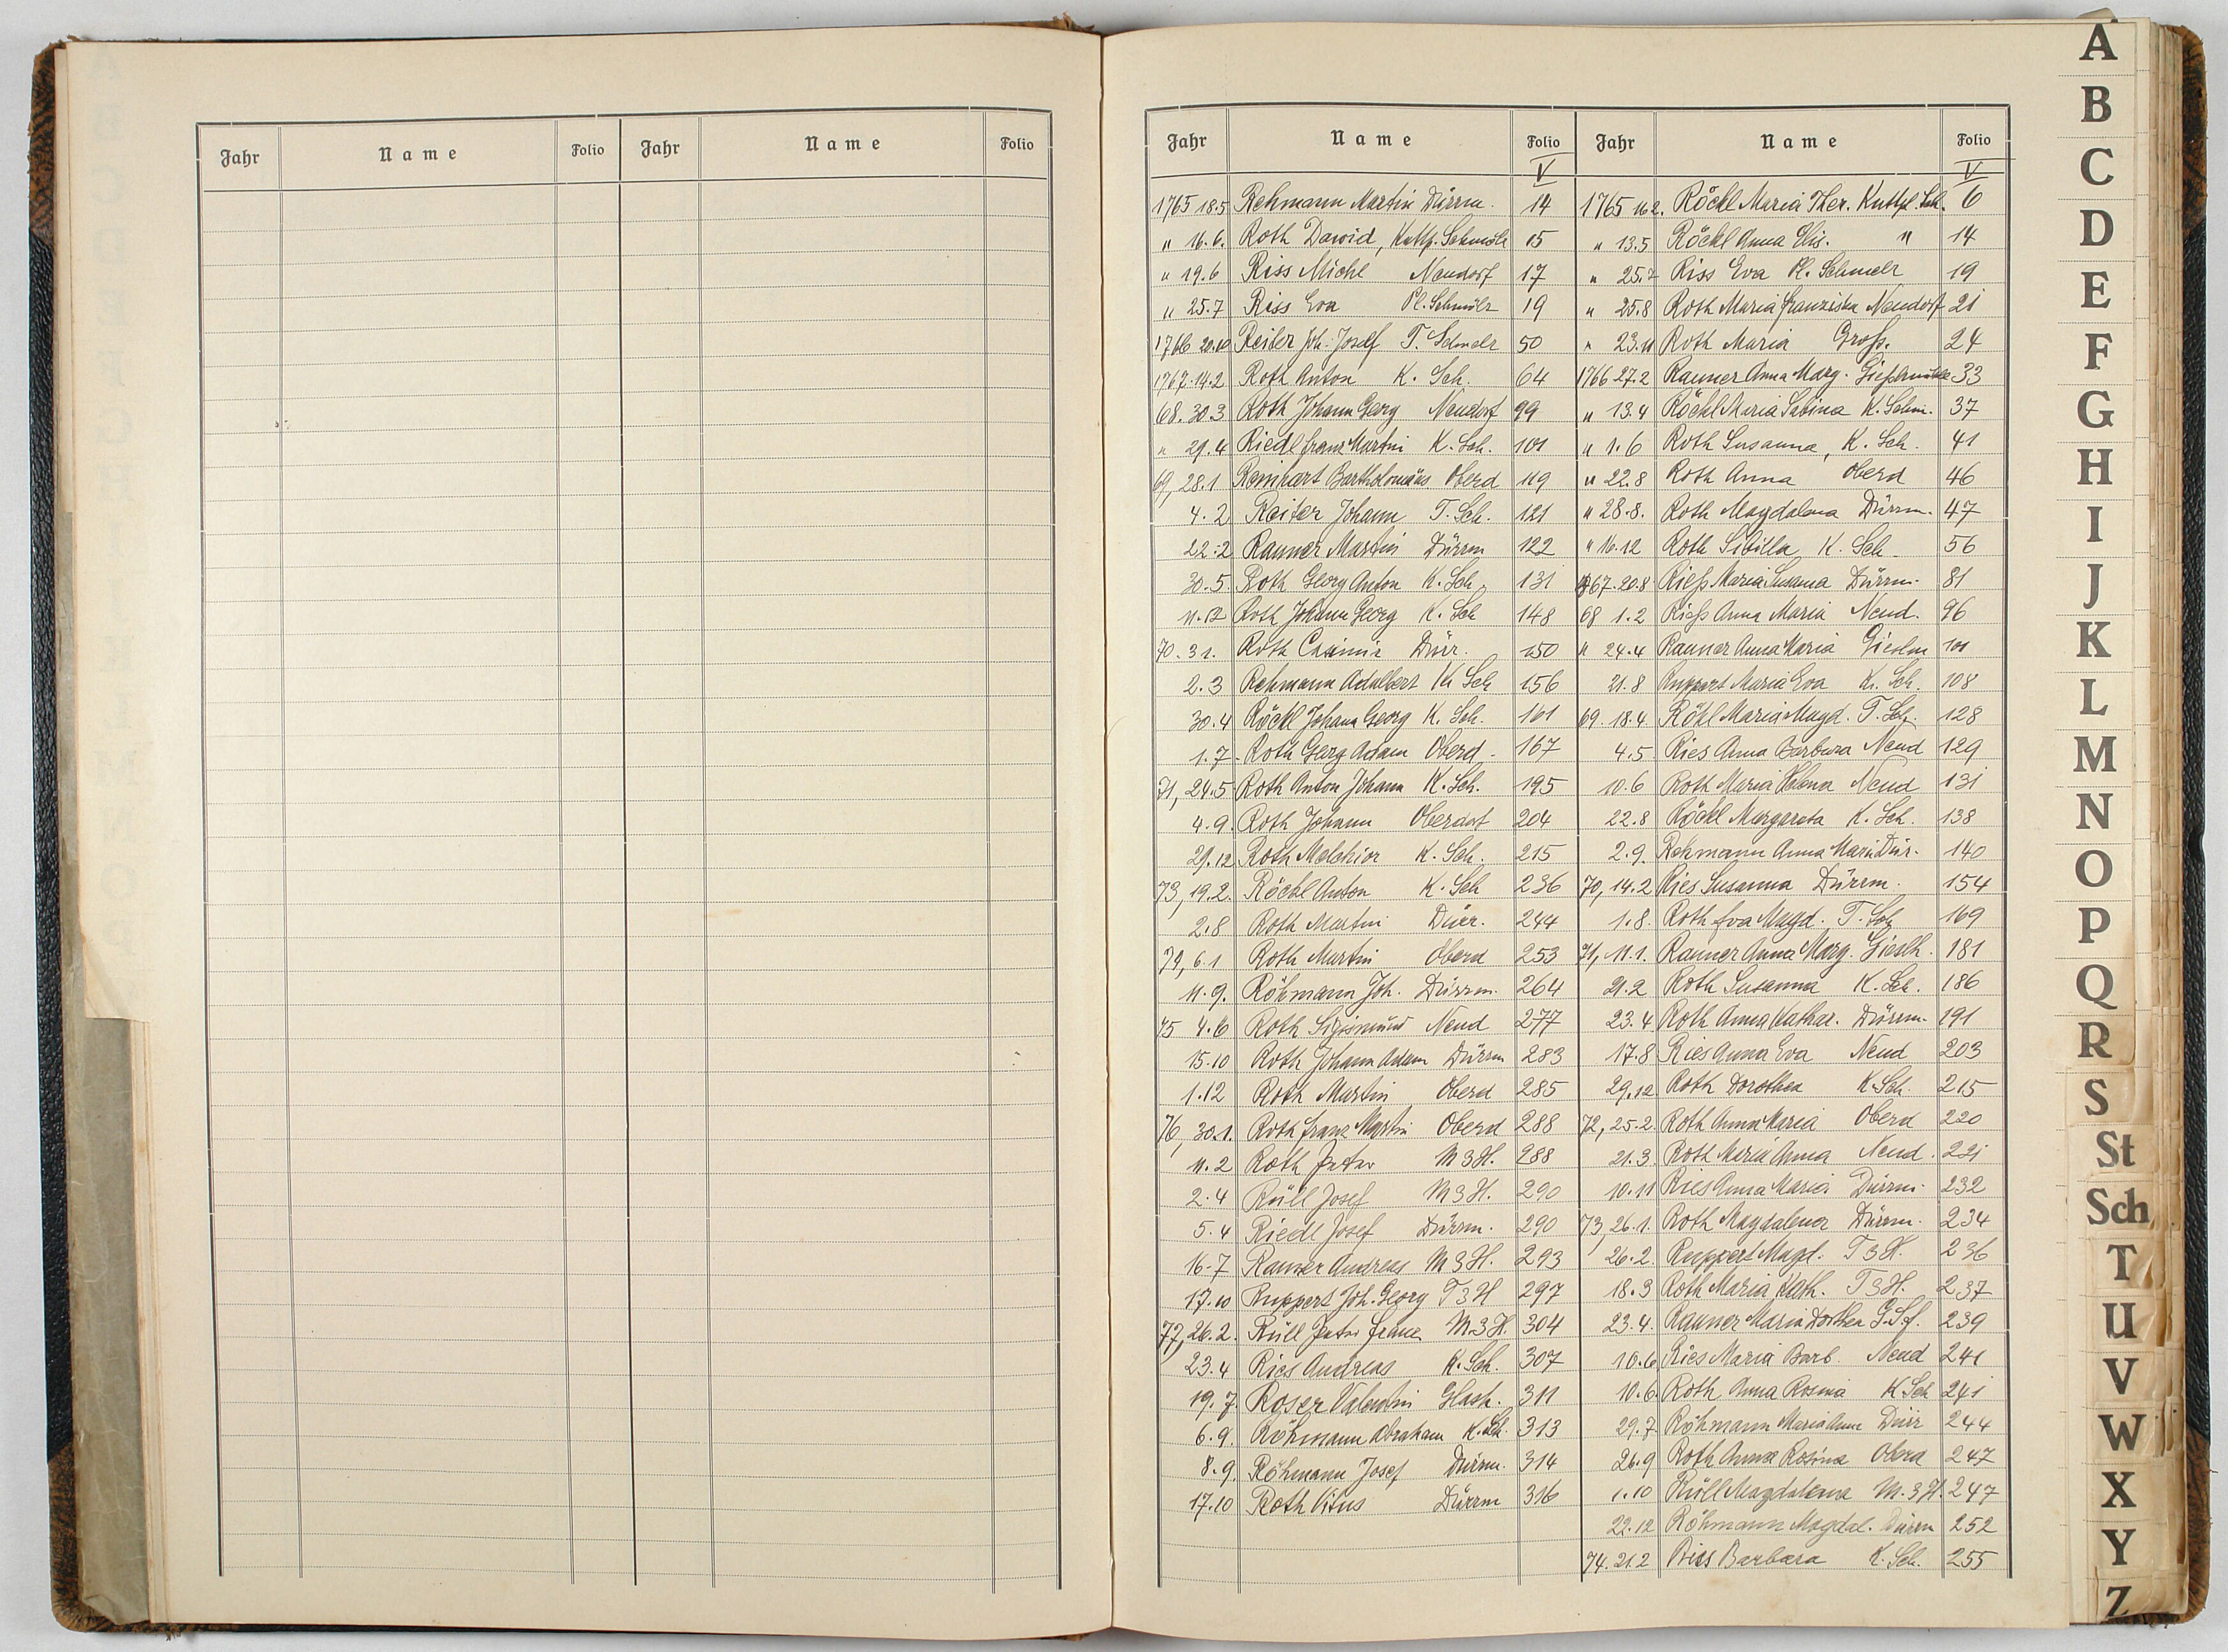 Jahr Name Folio Jahr Name Folio
Jahr Name Folio Jahr Name Folio
V V
1765 18.5 Rehmann Martin Dürrm. 14
" 16.6. Roth Dawid, Kuttp. Schmelz 15
" 19.6 Riss Michl Neudorf 17
" 25.7 Riss Eva Pl. Schmelz 19
1766 20.10 Reiter Joh. Josef T. Schmelz 50
1767. 14.2 Roth Anton K. Sch. 64
68. 30.3 Roth Johann Georg Neudorf 99
" 29.4 Riedl Franz Martin K. Sch. 101
69, 28.1 Reinhart Bartholomäus Oberd 119
4.2 Reiter Johann T. Sch. 121
22.2 Rauner Martin Dürrm 122
30.5 Roth Georg Anton K. Sch. 131
11.12 Roth Johann Georg K. Sch 148
70. 31. Roth Casimir Dürr. 150
2.3 Rehmann Adalbert K. Sch 156
30.4 Röckl Johann Georg K. Sch. 161
1.7. Roth Georg Adam Oberd. 167
71, 24.5 Roth Anton Johann K. Sch. 195
4.9. Roth Johann Oberdorf 204
29.12 Roth Melchior K. Sch. 215
73, 19.2. Röckl Anton K. Sch 236
2.8 Roth Martin Dürr. 244
74, 6.1 Roth Martin Oberd 253
11.9. Röhmann Joh. Dürrm. 264
75 4.6 Roth Sigismund Neud 277
15.10 Roth Johann Adam Dürrm 283
1.12 Roth Martin Oberd 285
76, 30.1. Roth Franz Martin Oberd 288
11.2 Roth Peter M 3 H. 288
2.4 Rüll Josef M 3 H. 290
5.4 Riedl Josef Dürrm. 290
16.7 Rauner Andreas M 3 H. 293
17.10 Ruppert Joh. Georg T 3 H 297
77, 26.2. Rüll Peter Franz M. 3 H. 304
23.4 Ries Andreas K. Sch. 307
19.7. Roser Valentin Glash. 311
6.9. Röhmann Abraham K. Sch. 313
8.9. Röhmann Josef Dürrm. 314
17.10 Roth Vitus Dürrm 316
1765 16.2. Röckl Maria Ther. Kuttpl. Sch. 6
" 13.5 Röckl Anna Elis. " 14
" 25.7 Riss Eva Pl. Schmelz 19
" 25.8 Roth Maria Franziska Neudorf 21
" 23.11 Roth Maria Groß. 24
1766 27.2 Rauner Anna Marg. 33
" 13.4 Röckl Maria Sabina K. Schm. 37
" 1.6 Roth Susanna, K. Sch. 41
" 22.8 Roth Anna Oberd 46
" 28.8. Roth Magdalena Dürrm. 47
" 16.12 Roth Sibilla K. Sch. 56
1767. 20.8 Rieß Maria Susana Dürrm. 81
68 1.2 Rieß Anna Maria Neud. 96
" 24.4 Rauner Anna Maria 101
21.8 Ruppert Maria Eva K. Sch. 108
69. 18.4 Rökl Maria Magd. T. Sch. 128
4.5 Ries Anna Barbara Neud 129
10.6 Roth Maria Helena Neud 131
22.8 Röckl Margareta K. Sch. 138
2.9. Rehmann Anna Maria Dür. 140
70, 14.2 Ries Susanna Dürrm. 154
1.8. Roth Eva Magd. T. Sch 169
71, 11.1. Rauner Anna Marg. 181
21.2 Roth Susanna K. Sch. 186
23.4 Roth Anna Kathar. Dürrm. 191
17.8 Ries Anna Eva Neud 203
29.12. Roth Dorothea K. Sch. 215
72, 25.2. Roth Anna Maria Oberd 220
21.3. Roth Maria Anna Neud. 221
10.11 Ries Anna Maria Dürrm. 232
73, 26.1. Roth Magdalena Dürrm. 234
26.2. Ruppert Magd. T 3 H. 236
18.3 Roth Maria Kath. T 3 H. 237
23.4. Rauner Maria Dorthea 239
10.6 Ries Maria Barb. Neud 241
10.6. Roth Anna Rosina K Sch 241
29.7. Röhmann Maria Anna Dürr 244
26.9 Roth Anna Rosina Oberd 247
1.10 Rüll Magdalena M. 3 H. 247
22.12 Röhmann Magdal. Dürrm 252
74. 21.2 Riss Barbara K. Sch. 255
A
B
C
D
E
F
G
H
I
J
K
L
M
N
O
P
Q
R
S
St
Sch
T
U
V
W
X
Y
Z